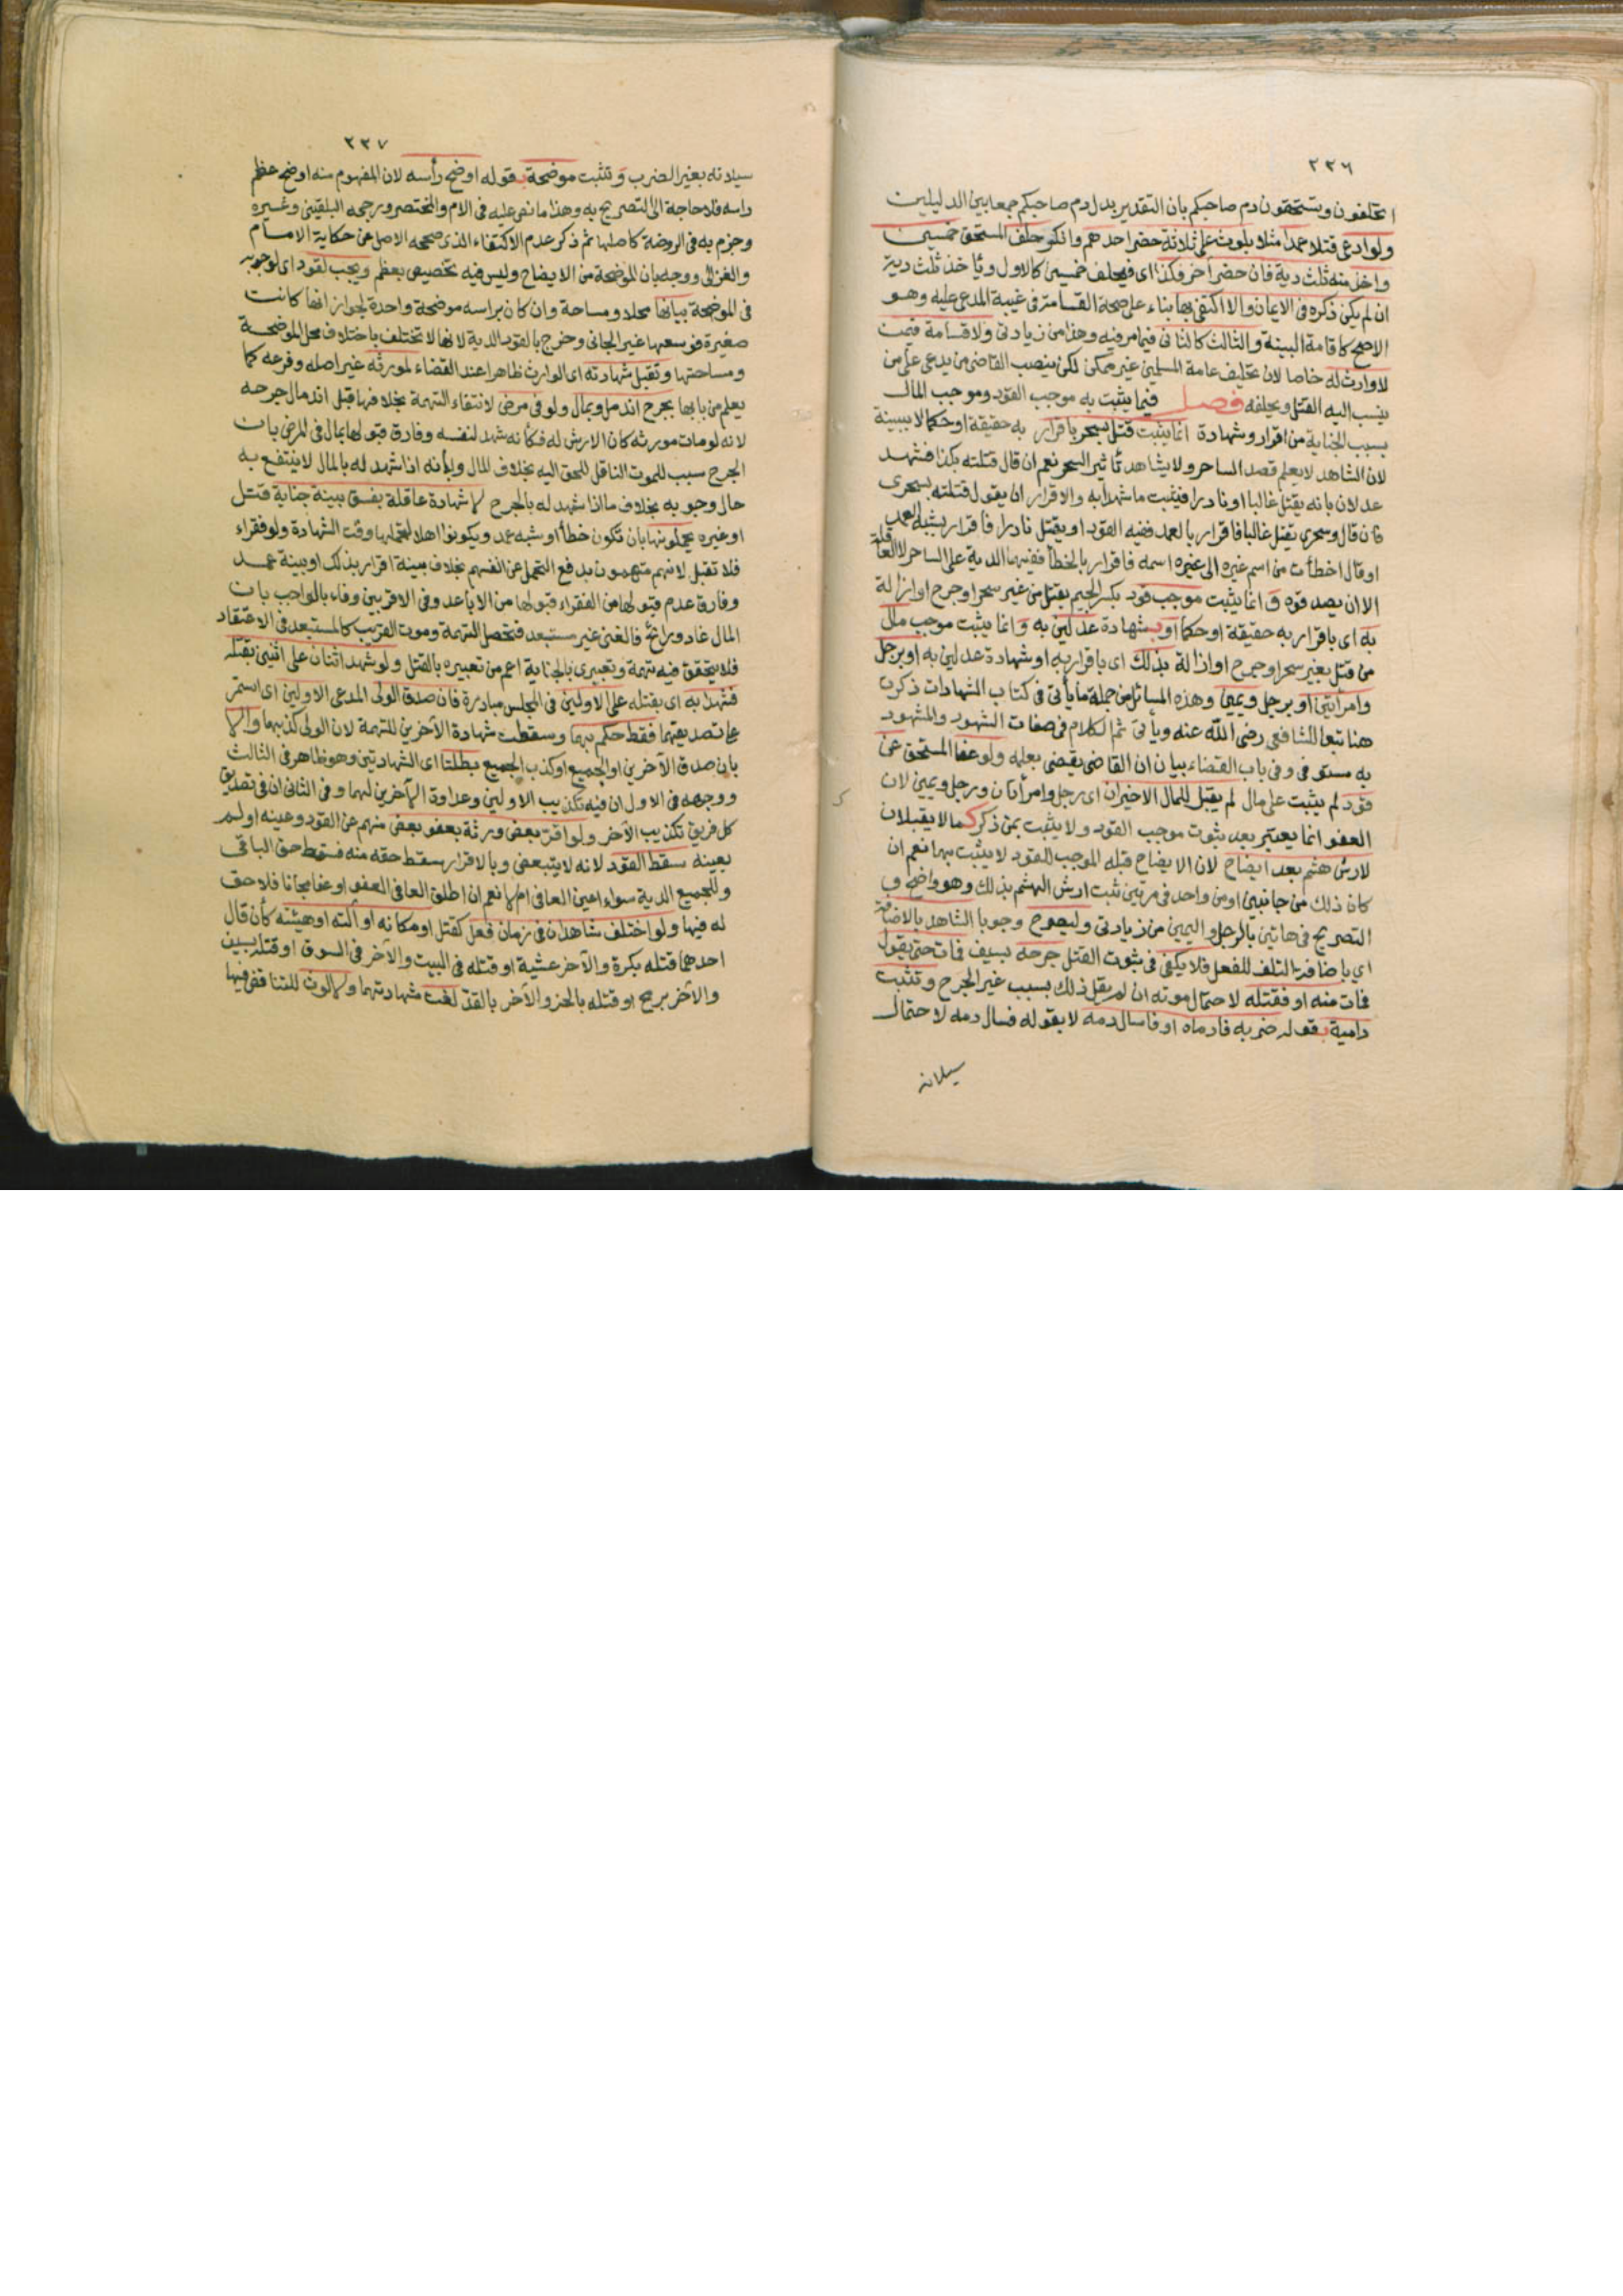 ٢٣٦
اتحلفون وتستحقون دم صاحبكم بان التقدير بدل دم صاحبكم جمعا بين الدليلين
ولو ادعى قتلا عمدا مثلا بلوث على ثلاثة حضر احدهم وانكر حلف المستحق خمسين
واخذ منه ثلث دية فان حضر آخر فكذا اى فيحلف خمسين كالاول ويأخذ ثلث دية
ان لم يكن ذكره فى الايمان والا اكتفى بها بناء على صحة القسامة فى غيبة المدعى عليه وهو
الاصح كاقامة البينة والثالث كالثانى فيما مر فيه وهذا من زيادتى ولا قسامة فيمن
لا وارث له خاصا لان تحليف عامة المسلمين غير ممكن لكن ينصب القاضى من يدعى على من
ينسب اليه القتل ويحلفه فصل فيما يثبت به موجب القود وموجب المال
بسبب الجناية من اقرار وشهادة انما يثبت قتل بسحر باقرار به حقيقة او حكما لا ببينة
لان الشاهد لا يعلم قصد الساحر ولا يشاهد تأثير السحر نعم ان قال قتلته بكذا فشهد
عدلان بانه يقتل غالبا او نادرا فيثبت ما شهدا به والاقرار ان يقول قتلته بسحرى
فان قال وسحرى يقتل غالبا فاقرار بالعمد ففيه القود او يقتل نادرا فاقرار بشبه العمد
او قال اخطأت من اسم غيره الى غيره اسمه فاقرار بالخطأ ففيهما الدية على الساحر لا العاقلة
الا ان يصدقوه و انما يثبت موجب قود بكسر الجيم بقتل من غير سحر او جرح او ازالة
به اى باقرار به حقيقة او حكما او بشهادة عدلين به و انما يثبت موجب مال
من قتل بغير سحر او جرح او ازالة بذلك اى باقرار به او شهادة عدلين به او برجل
وامرأتين او برجل ويمين وهذه المسائل من جملة ما يأتى فى كتاب الشهادات ذكرت
هنا تبعا للشافعى رضى الله عنه ويأتى ثم الكلام فى صفات الشهود والمشهود
به مستوفى وفى باب القضاء بيان ان القاضى يقضى بعلمه ولو عفا المستحق عن
قود لم يثبت على مال لم يقبل للمال الاخيران اى رجل وامرأتان ورجل ويمين لان
العفو انما يعتبر بعد ثبوت موجب القود ولا يثبت بمن ذكر كما لا يقبلان
لارش هشم بعد ايضاح لان الايضاح قبله الموجب للقود لا يثبت بهما نعم ان
كان ذلك من جانبين او من واحد فى مرتين ثبت ارش الهشم بذلك وهو واضح و
التصريح فى هاتين بالرجل واليمين من زيادتى وليصرح وجوبا الشاهد بالاضافة
اى باضافة التلف للفعل فلا يكفى فى ثبوت القتل جرحه بسيف فمات حتى يقول
فمات منه او فقتله لاحتمال موته ان لم يقل ذلك بسبب غير الجرح و تثبت
دامية بقوله ضربه فادماه او فاسال دمه لا بقوله فسال دمه لاحتمال
سيلانه
٢٣٧
سيلانه بغير الضرب و تثبت موضحة بقوله اوضح رأسه لان المفهوم منه اوضح عظم
رأسه فلا حاجة الى التصريح به وهذا ما نص عليه فى الام والمختصر ورجحه البلقينى وغيره
وجزم به فى الروضة كاصلها ثم ذكر عدم الاكتفاء الذى صححه الاصل عن حكاية الامام
والغزالى ووجه بان الموضحة من الايضاح وليس فيه تخصيص بعظم ويجب لقود اى لوجوبه
فى الموضحة بيانها محلا ومساحة وان كان براسه موضحة واحدة لجواز انها كانت
صغيرة فوسعها غير الجانى وخرج بالقود الدية لانها لا تختلف باختلاف محل الموضحة
ومساحتها وتقبل شهادته اى الوارث ظاهرا عند القضاء لمورثه غير اصله وفرعه كما
يعلم من بابها بجرح اندمل وبمال ولو فى مرض لانتفاء التهمة بخلافها قبل اندمال جرحه
لانه لو مات مورثه كان الارش له فكأنه شهد لنفسه وفارق قبولها بمال فى المرض بان
الجرح سبب للموت الناقل للحق اليه بخلاف المال وبأنه اذا شهد له بالمال لا ينتفع به
حال وجوبه بخلاف ما اذا شهد له بالجرح لا شهادة عاقلة بفسق بينة جناية قتل
او غيره يحملونها بان تكون خطأ او شبه عمد ويكونوا اهلا لتحملها وقت الشهادة ولو فقراء
فلا تقبل لانهم متهمون بدفع التحمل عن انفسهم بخلاف بينة اقرار بذلك او بينة عمد
وفارق عدم قبولها من الفقراء قبولها من الاباعد وفى الاقربين وفاء بالواجب بان
المال غاد ورائح فالغنى غير مستبعد فتحصل التهمة وموت القريب كالمستبعد فى الاعتقاد
فلا يتحقق فيه تهمة وتعبيرى بالجناية اعم من تعبيره بالقتل ولو شهد اثنان على اثنين بقتله
فشهدا به اى بقتله على الاولين فى المجلس مبادرة فان صدق الولى المدعى الاولين اى استمر
على تصديقهما فقط حكم بهما وسقطت شهادة الآخرين للتهمة لان الولى كذبهما والا
بان صدق الآخرين او الجميع او كذب الجميع بطلتا اى الشهادتين وهو ظاهر فى الثالث
ووجهه فى الاول ان فيه تكذيب الاولين وعداوة الآخرين لهما وفى الثانى ان فى تصديق
كل فريق تكذيب الآخر ولو اقر بعض ورثة بعفو بعض منهم عن القود وعينه او لم
يعينه سقط القود لانه لا يتبعض وبالاقرار سقط حقه منه فسقط حق الباقى
وللجميع الدية سواء اعين العافى ام لا نعم ان اطلق العافى العفو او عفا مجانا فلا حق
له فيها ولو اختلف شاهدان فى زمان فعل كقتل او مكانه او آلته او هيئته كأن قال
احدهما قتله بكرة والآخر عشية او قتله فى البيت والآخر فى السوق او قتله بسيف
والآخر برمح او قتله بالحز والآخر بالقد لغت شهادتهما ولا لوث للتناقض فيها